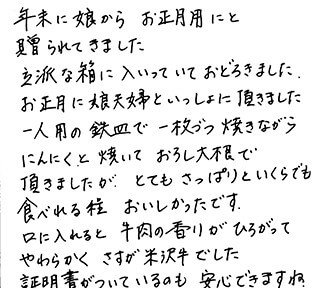 年末に娘から お正月用にと
贈られてきました
立派な箱に入いっていておどろきました.
お正月に娘夫婦といっしょに頂きました
一人用の鉄皿で一枚づつ焼きながら
にんにくと焼いて おろし大根で
頂きましたが、とてもさっぱりといくらでも
食べれる程 おいしかったです.
口に入れると牛肉の香りがひろがって
やわらかく さすが米沢牛でした
証明書がついているのも 安心できますね